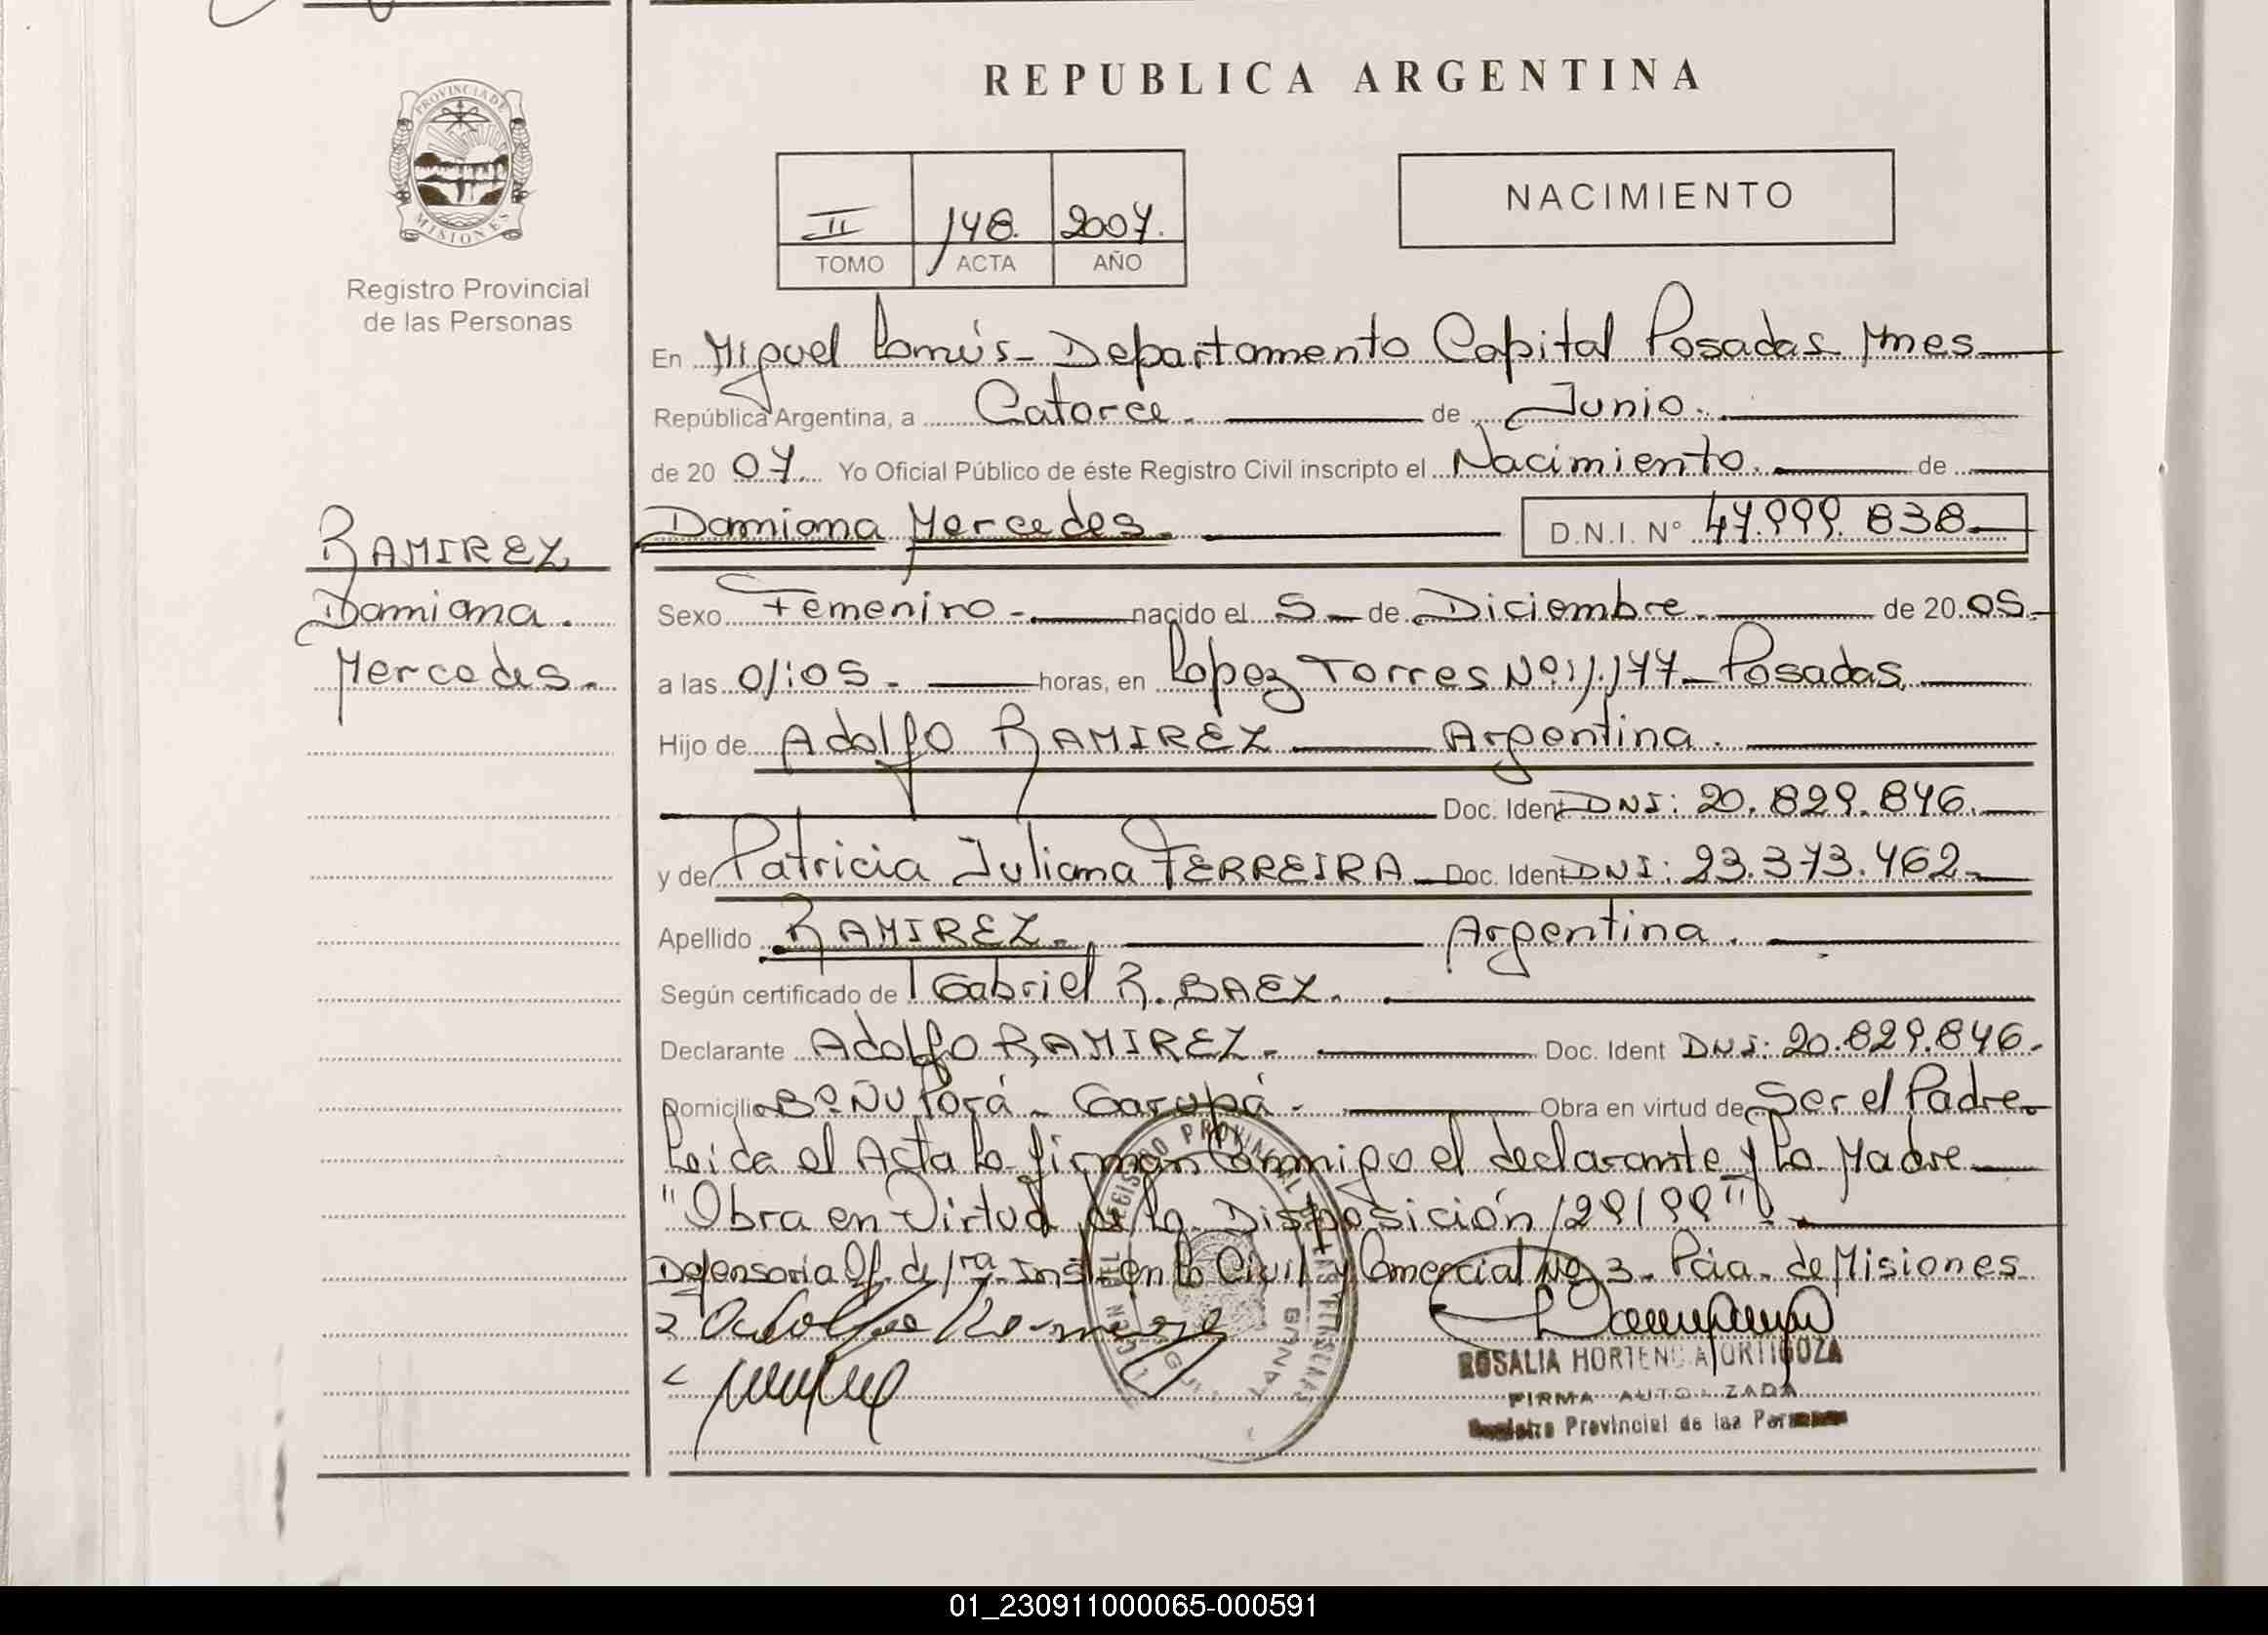 REPUBLICA ARGENTINA
PROVINCIA DE
MISIONES
Registro Provincial
de las Personas
II 148. 2007.
TOMO ACTA AÑO
NACIMIENTO
En Miguel Lanús - Departamento Capital Posadas Mnes
República Argentina, a Catorce. de Junio.
de 20 07. Yo Oficial Público de éste Registro Civil inscripto el Nacimiento. de
Damiana Mercedes. D.N.I. N° 47.999.838
RAMIREZ
Damiana.
Mercedes.
Sexo Femenino - nacido el 5 - de Diciembre. de 20 05.
a las 01:05 - horas, en Lopez Torres Nº 1.177 - Posadas.
Hijo de Adolfo RAMIREZ Argentina.
Doc. Ident DNI: 20.829.846.
y de Patricia Juliana FERREIRA - Doc. Ident DNI: 23.373.462-
Apellido RAMIREZ. Argentina.
Según certificado de Gabriel R. BAEZ.
Declarante Adolfo RAMIREZ - Doc. Ident DNI: 20.829.846.
Domicilio Bº Ñu Porá - Garupá - Obra en virtud de Ser el Padre
Leída el Acta la firman conmigo el declarante y la Madre
"Obra en Virtud de la Disposición 129/99".
Defensoria Of. de 1ra. Inst. en lo Civil y Comercial Nº 3 - Pcia. de Misiones
ROSALIA HORTENCIA ORTIGOZA
FIRMA AUTORIZADA
Registro Provincial de las Personas
01_230911000065-000591